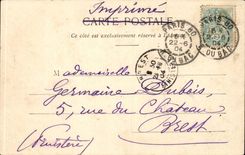 Imprimé
CARTE POSTALE
Ce côté est exclusivement réservé à l'adresse
PARIS 90
22-6
04
DU BAC
PARIS 90
DU BAC
BREST
Mademoiselle
Germaine Dubois
5, rue du Château
Brest
(Finistère)